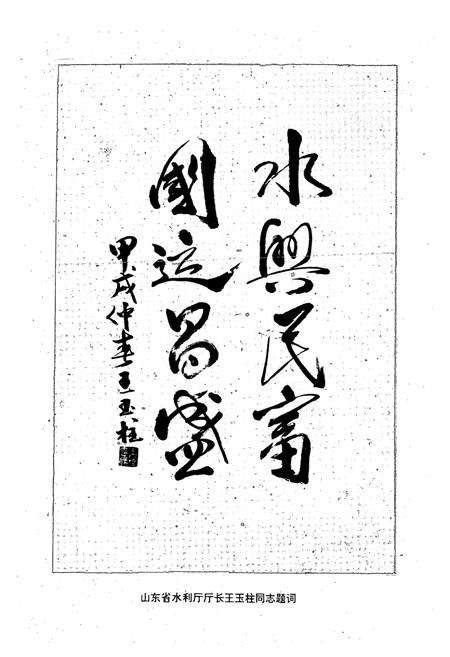 水興民富
國运昌盛
甲戌仲春王玉柱
山东省水利厅厅长王玉柱同志题词